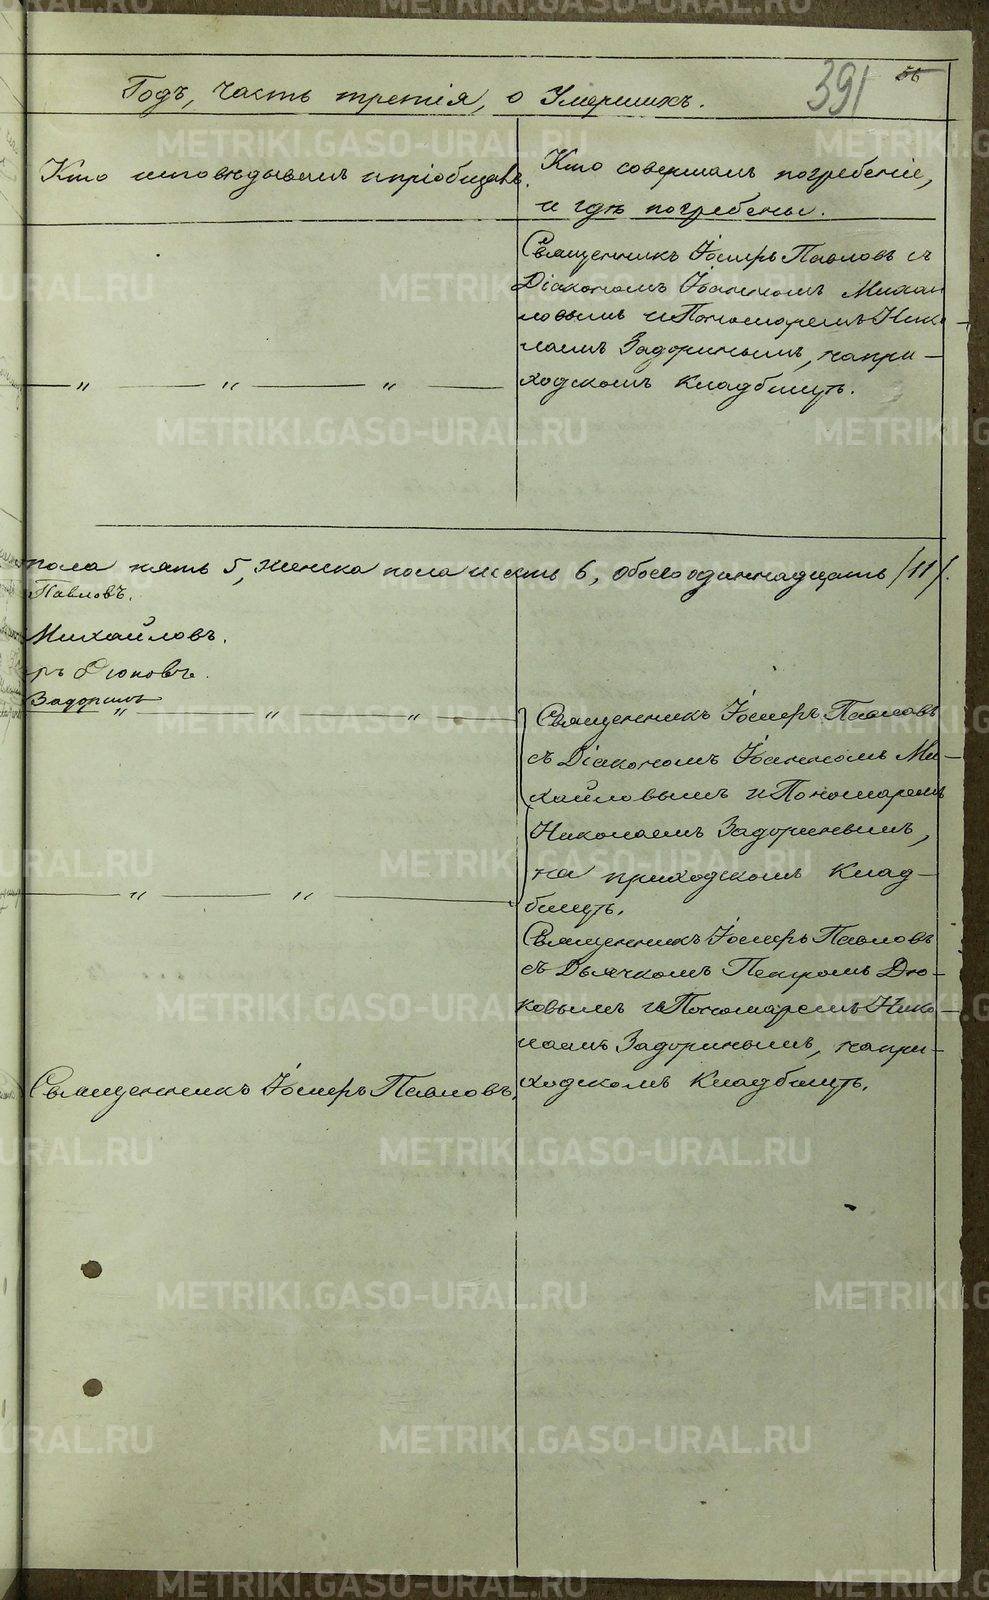 391 56
Годъ, часть третія, о Умершихъ.
Кто исповѣдывалъ и пріобщалъ.
Кто совершалъ погребеніе,
и гдѣ погребены.
Священникъ Іосифъ Павловъ съ
Діакономъ Іоанномъ Михай
ловымъ и Пономаремъ Нико-
лаемъ Задоринымъ, на при-
ходскомъ кладбищѣ.
— " — " — " —
пола пять 5, женска пола шесть 6, обоего одиннадцать /11/.
Павловъ.
Михайловъ.
ръ Дюковъ.
Задоринъ
" — " — " —
Священникъ Іосифъ Павловъ
съ Діакономъ Іоанномъ Ми-
хайловымъ и Пономаремъ
Николаемъ Задоринымъ,
на приходскомъ клад-
бищѣ.
— " — " —
Священникъ Іосифъ Павловъ
съ Дьячкомъ Петромъ Дю-
ковымъ и Пономаремъ Нико-
лаемъ Задоринымъ, на при-
ходскомъ кладбищѣ.
Священникъ Іосифъ Павловъ.
METRIKI.GASO-URAL.RU